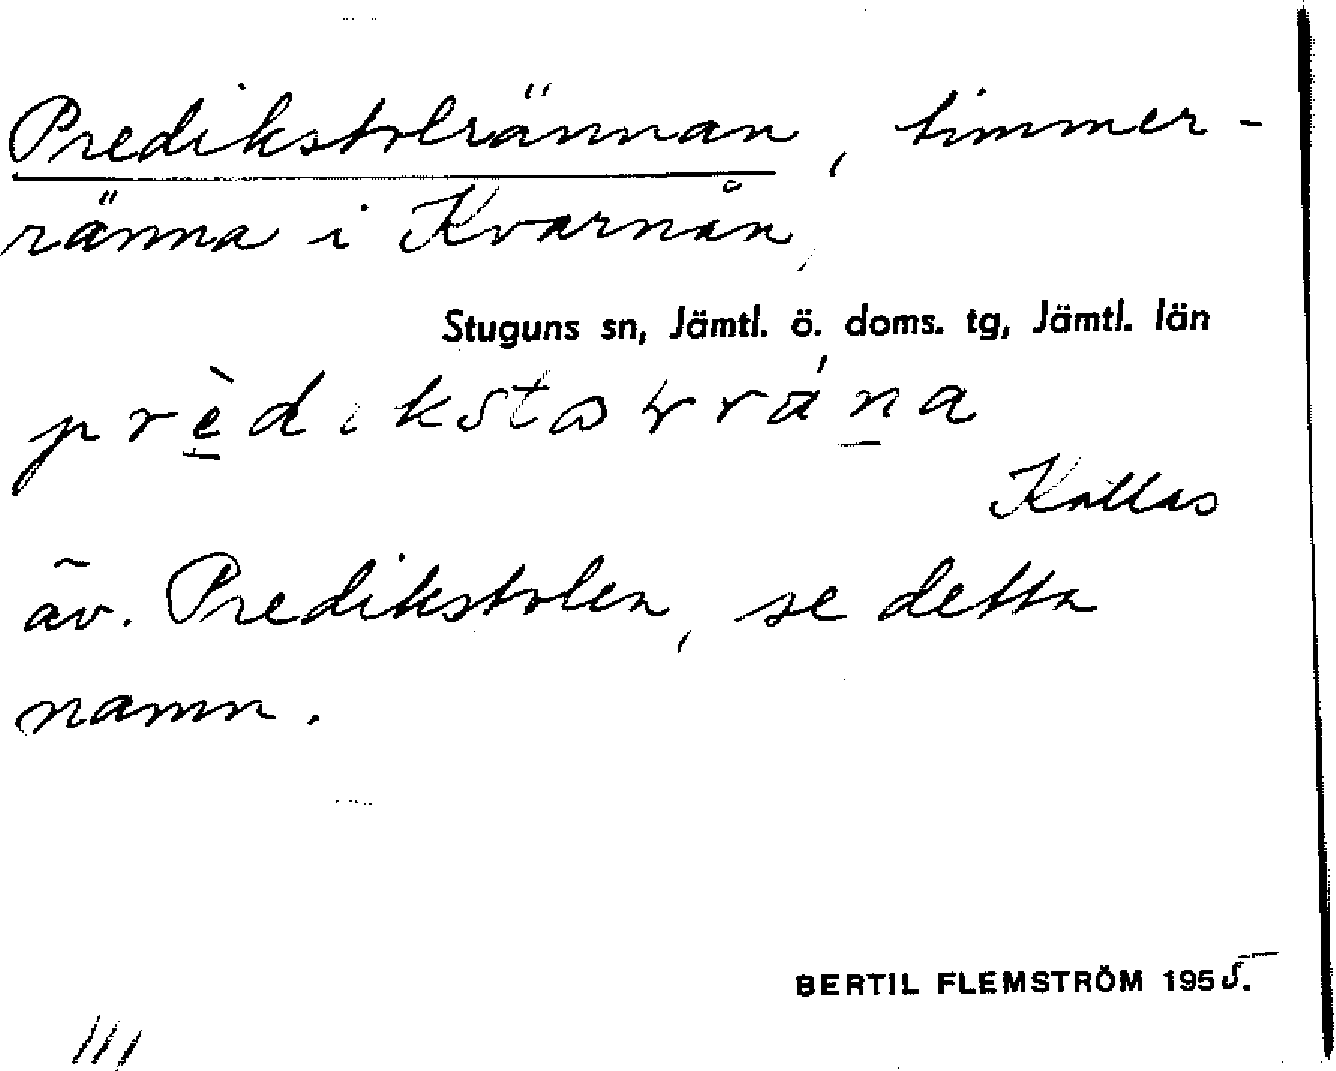 Predikstolrännan, timmer-
ränna i Kvarnån,
Stuguns sn, Jämtl. ö. doms. tg, Jämtl. län
Kallas
äv. Predikstolen, se detta
namn.
BERTIL FLEMSTRÖM 1955.